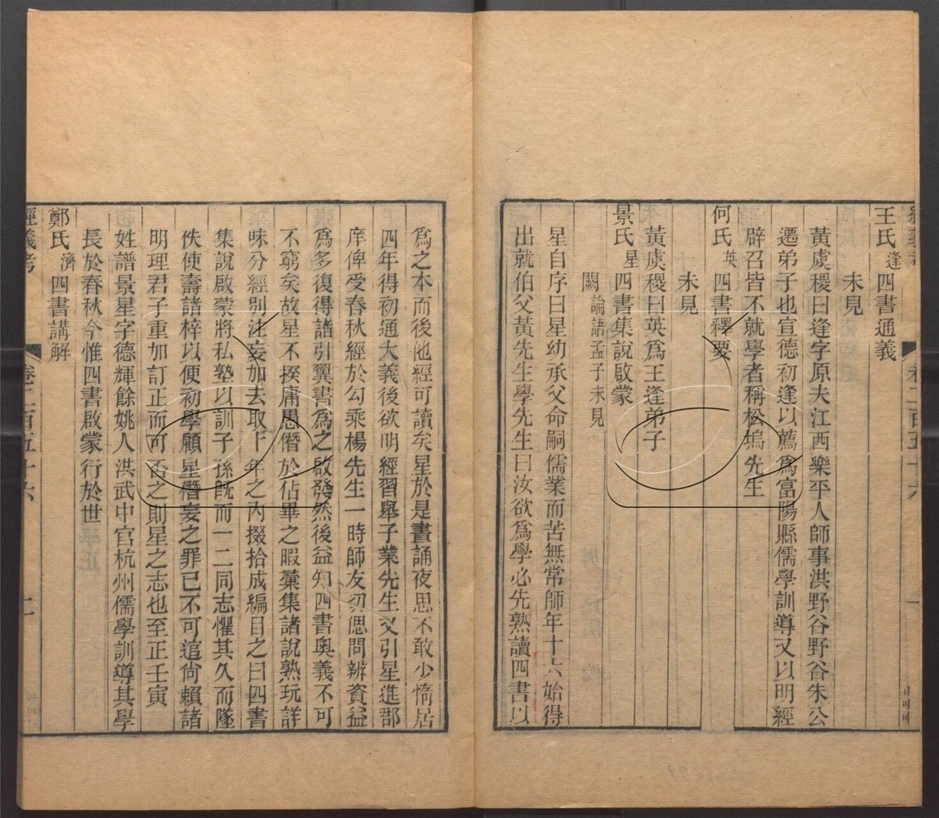 王氏逢四書通義
未見
黃虞稷曰逢字原夫江西樂平人師事洪野谷野谷朱公
遷弟子也宣德初逢以薦爲富陽縣儒學訓導又以明經
辟召皆不就學者稱松塢先生
何氏英四書釋要
未見
黃虞稷曰英爲王逢弟子
景氏星四書集說啟蒙
闕論語孟子未見
星自序曰星幼承父命嗣儒業而苦無常師年十六始得
出就伯父黃先生學先生曰汝欲爲學必先熟讀四書以
爲之本而後他經可讀矣星於是晝誦夜思不敢少惰居
四年得初通大義後欲明經習舉子業先生又引星進郡
庠俾受春秋經於勾乘楊先生一時師友切偲問辨資益
爲多復得諸引翼書爲之啟發然後益知四書奧義不可
不窮矣故星不揆庸愚僭於佔畢之暇彙集諸說熟玩詳
味分經別注妄加去取十年之內掇拾成編目之曰四書
集說啟蒙將私塾以訓子孫旣而一二同志懼其久而墜
佚使壽諸梓以便初學顧星僭妄之罪已不可逭尙賴諸
明理君子重加訂正而可否之則星之志也至正壬寅
姓譜景星字德輝餘姚人洪武中官杭州儒學訓導其學
長於春秋今惟四書啟蒙行於世
鄭氏濟四書講解
經義考 卷二百五十六